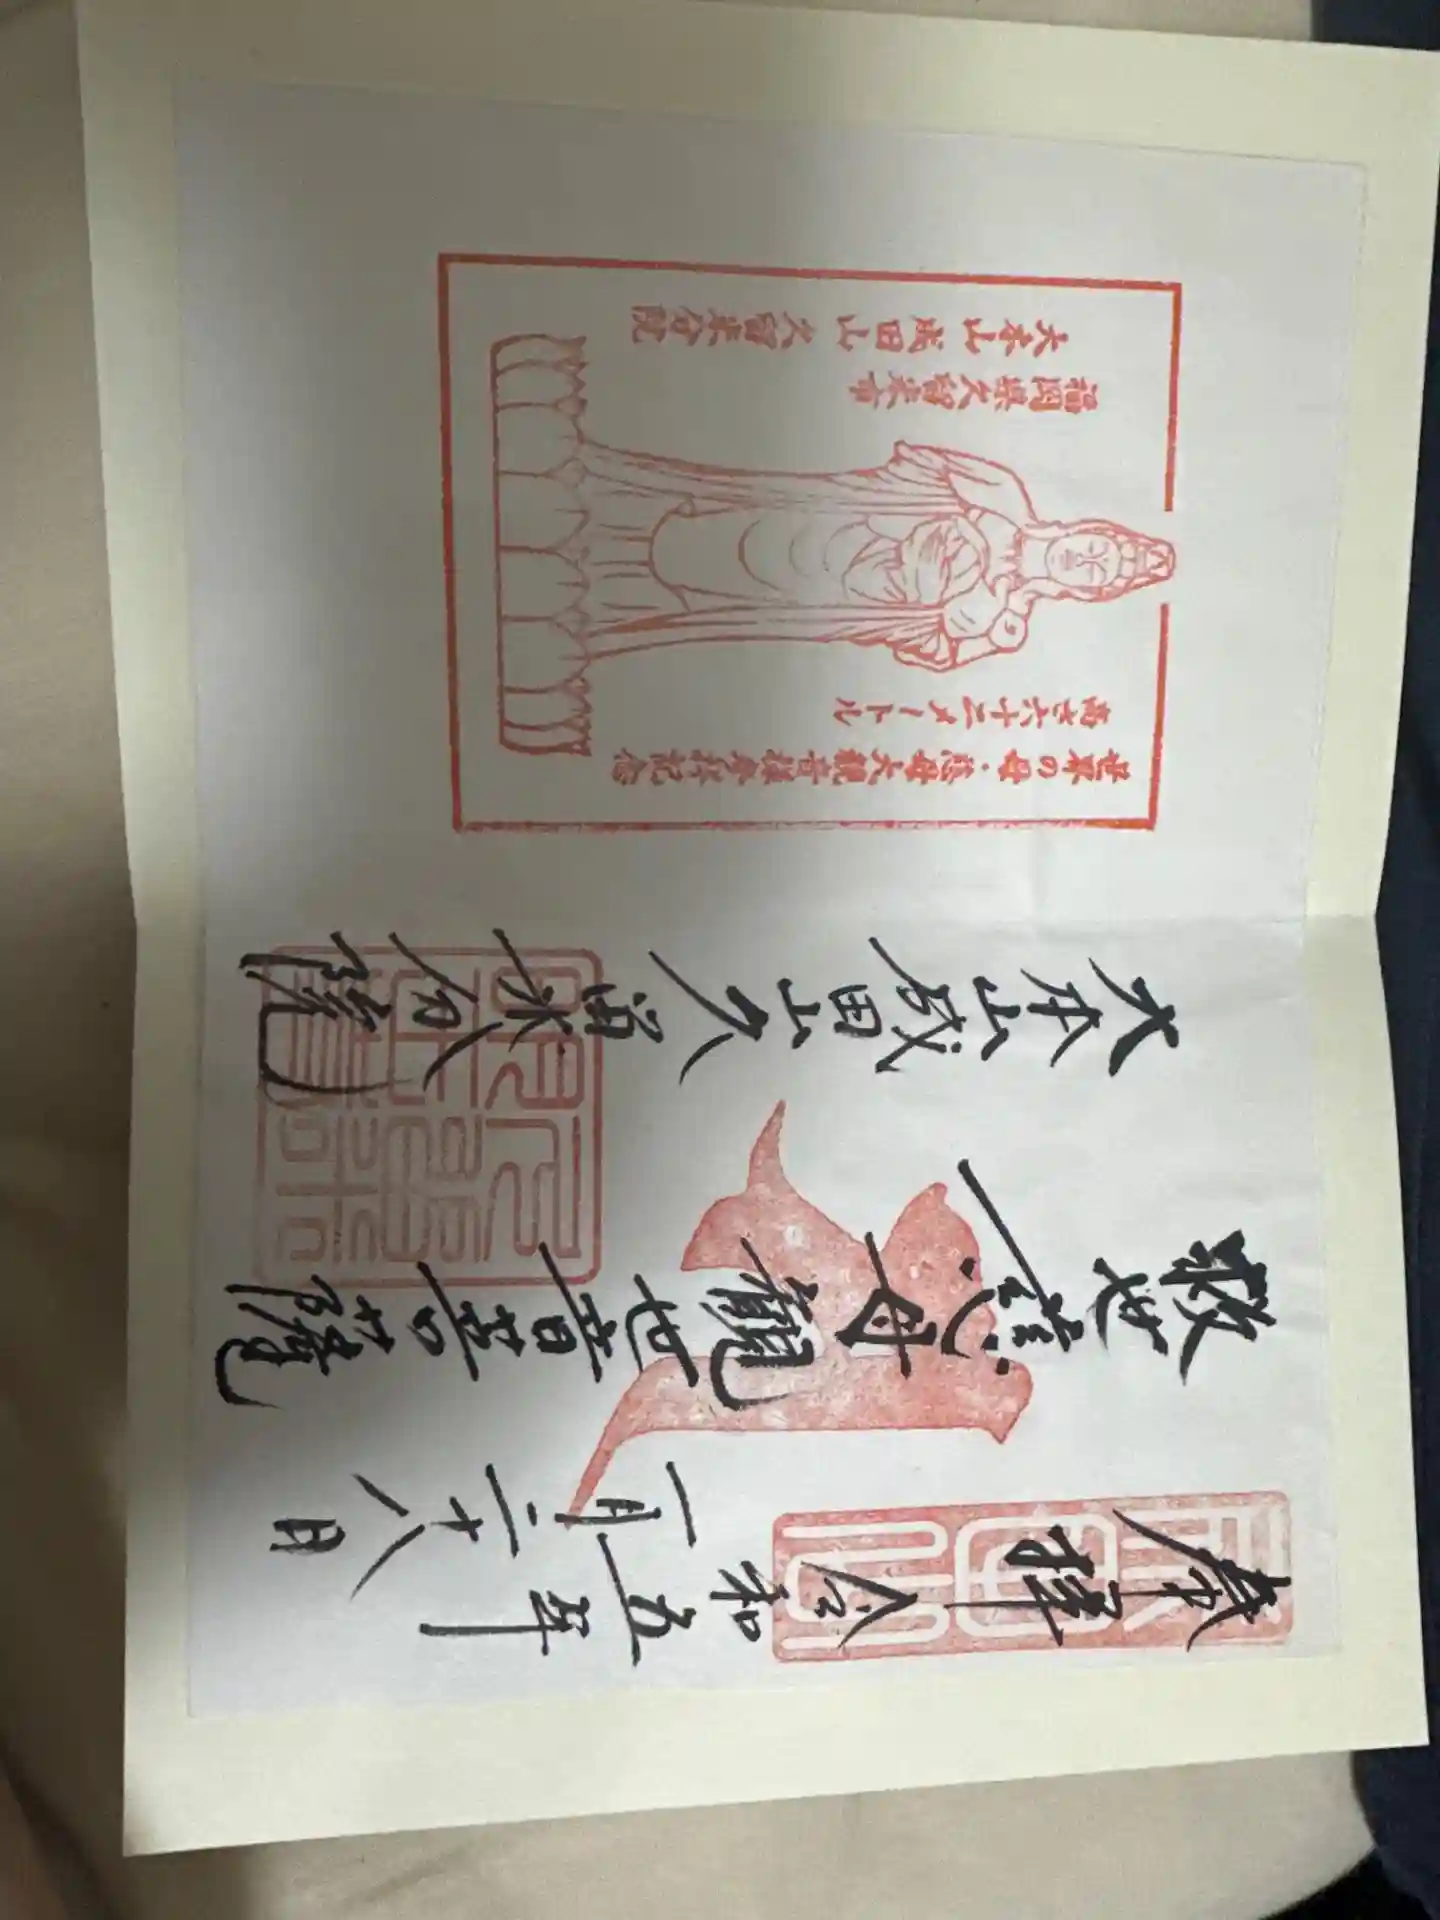 奉拝
令和五年
一月二十八日
救世慈母観世音菩薩
大本山成田山久留米分院
世界の母・慈母大観音様参拝記念
高さ六十二メートル
福岡県久留米市
大本山成田山 久留米分院